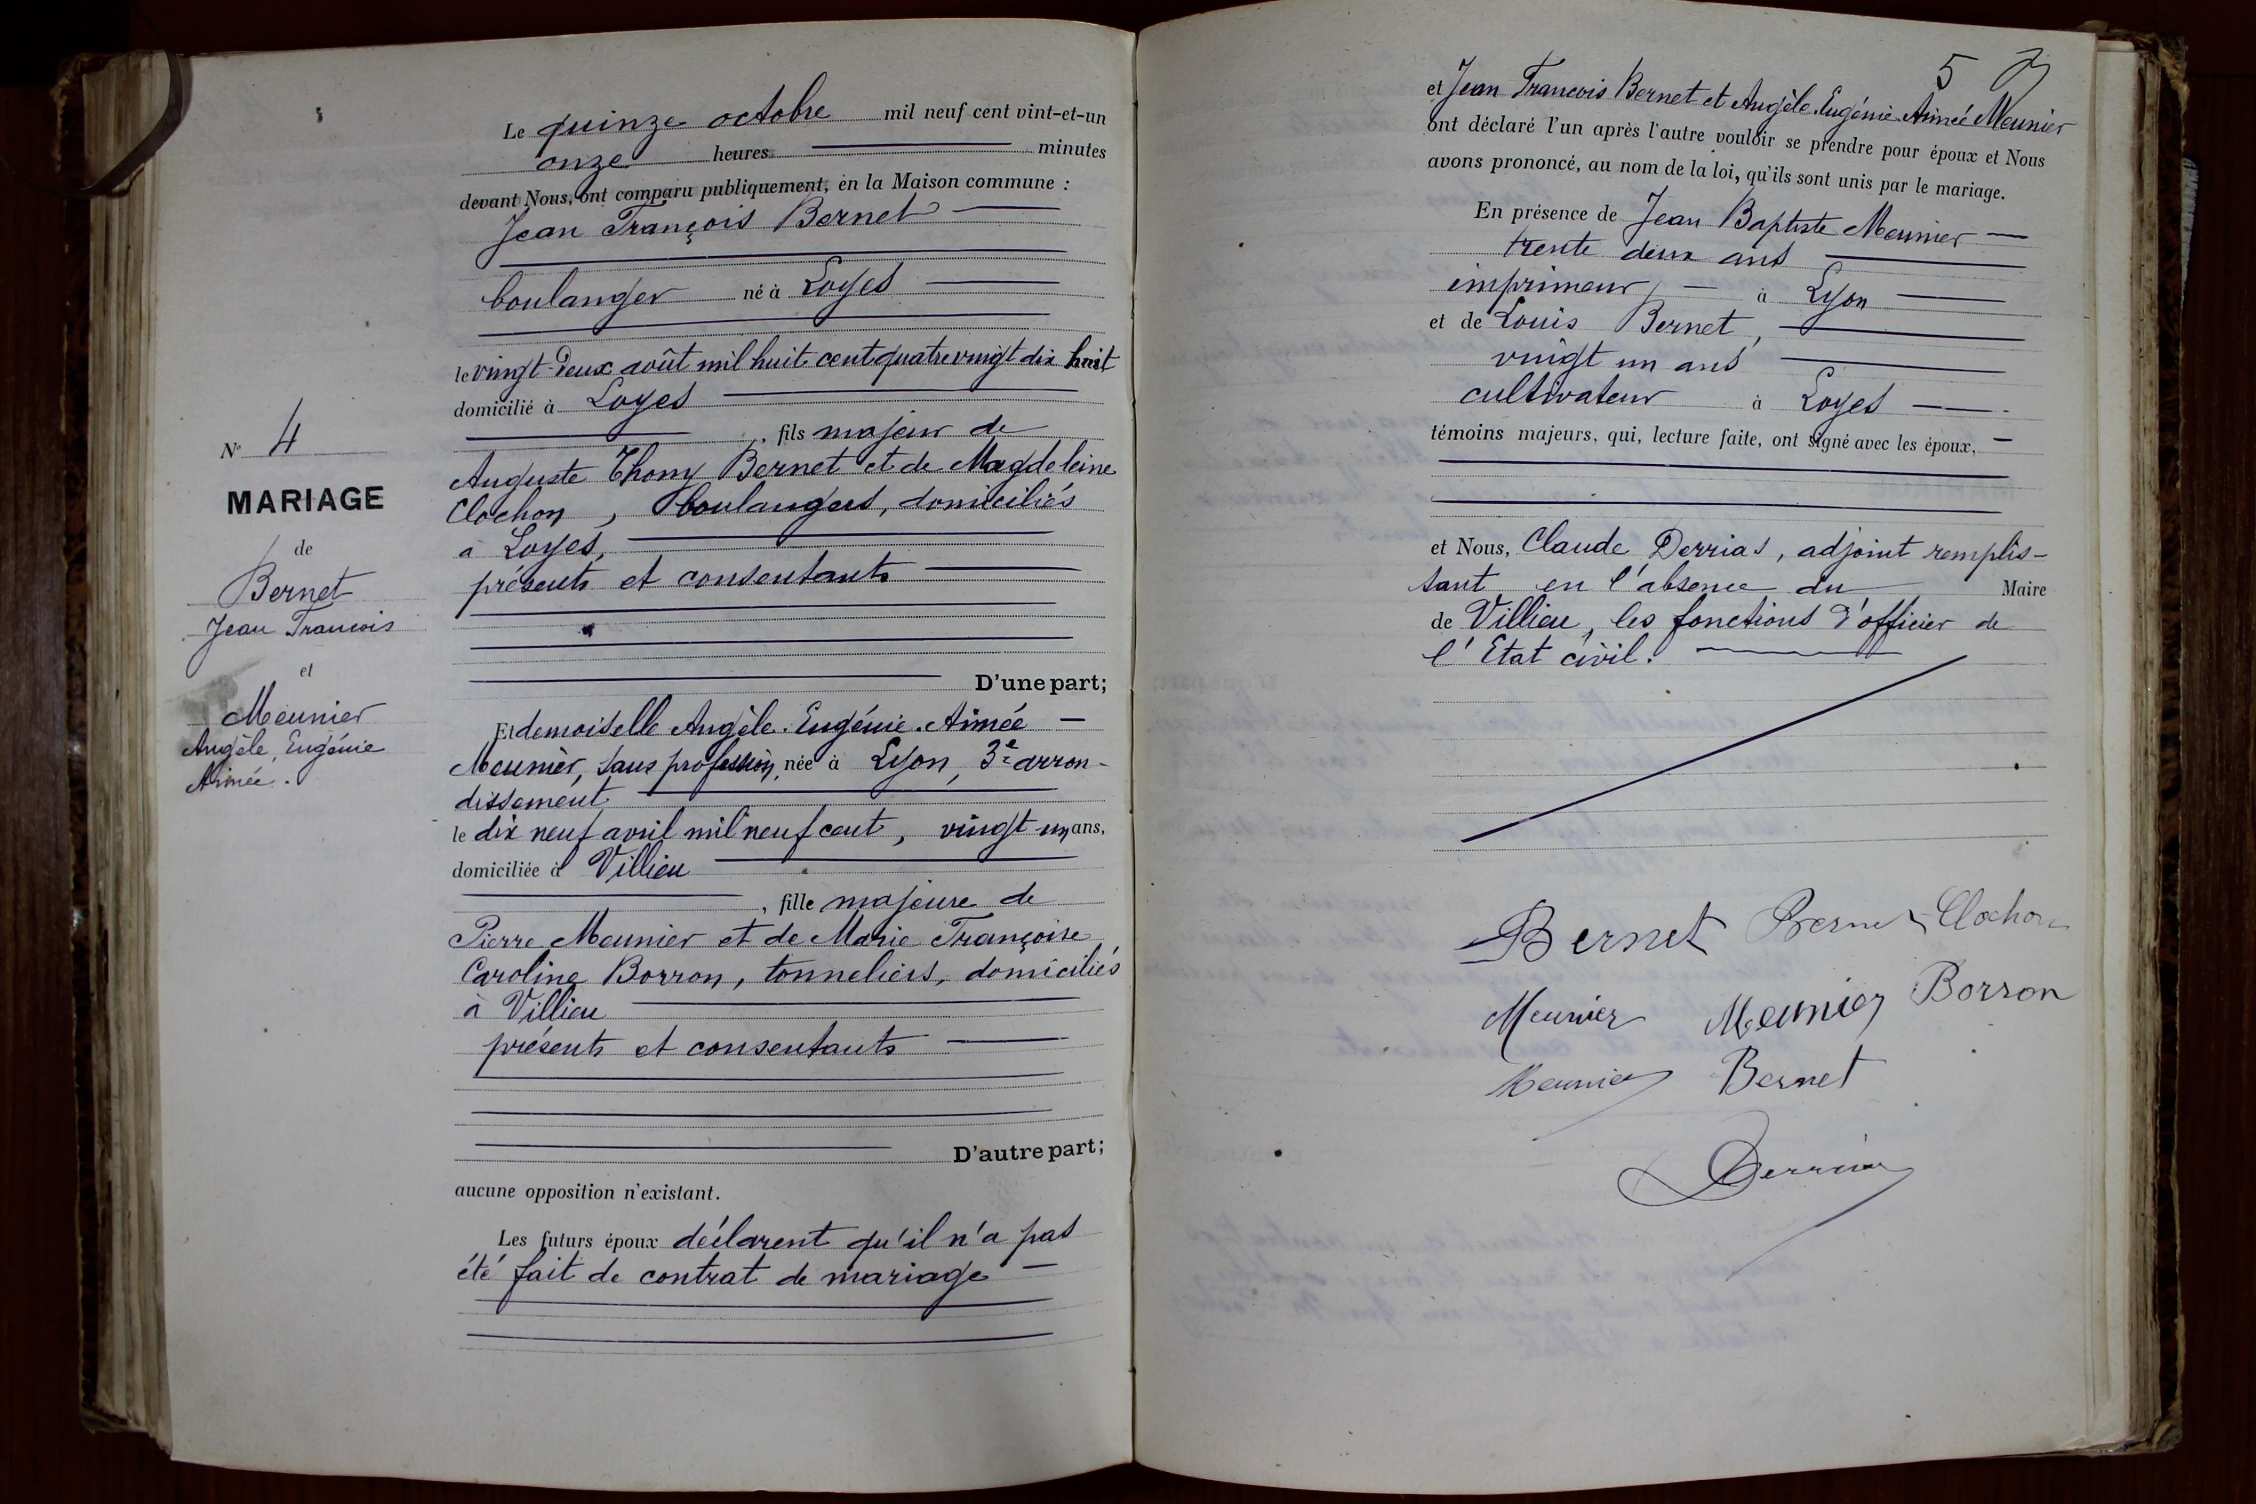 Le quinze octobre mil neuf cent vint-et-un
onze heures minutes
devant Nous, ont comparu publiquement, en la Maison commune :
Jean François Bernet
boulanger né à Loyes
le vingt-deux août mil huit cent quatre vingt dix huit
domicilié à Loyes
, fils majeur de
Auguste Thony Bernet et de Magdeleine
Clochon, boulangers, domiciliés
à Loyes,
présents et consentants
D'une part;
Et demoiselle Angèle. Eugénie. Aimée
Meunier, sans profession, née à Lyon, 3e arron-
dissement
le dix neuf avril mil neuf cent, vingt-un ans,
domiciliée à Villieu
, fille majeure de
Pierre Meunier et de Marie Françoise
Caroline Borron, tonneliers, domiciliés
à Villieu
présents et consentants
D'autre part;
aucune opposition n'existant.
Les futurs époux déclarent qu'il n'a pas
été fait de contrat de mariage
N° 4
MARIAGE
de
Bernet
Jean Francois
et
Meunier
Angèle, Eugénie
Aimée.
5
et Jean Francois Bernet et Angèle. Eugénie. Aimée Meunier
ont déclaré l'un après l'autre vouloir se prendre pour époux et Nous
avons prononcé, au nom de la loi, qu'ils sont unis par le mariage.
En présence de Jean Baptiste Meunier
trente deux ans
imprimeur, à Lyon
et de Louis Bernet,
vingt un ans
cultivateur à Loyes
témoins majeurs, qui, lecture faite, ont signé avec les époux,
et Nous, Claude Derrias, adjoint remplis-
sant en l'absence du Maire
de Villieu, les fonctions d'officier de
l'Etat civil.
Bernet Bernet Clochon
Meunier Meunier Borron
Meunier Bernet
Derrias